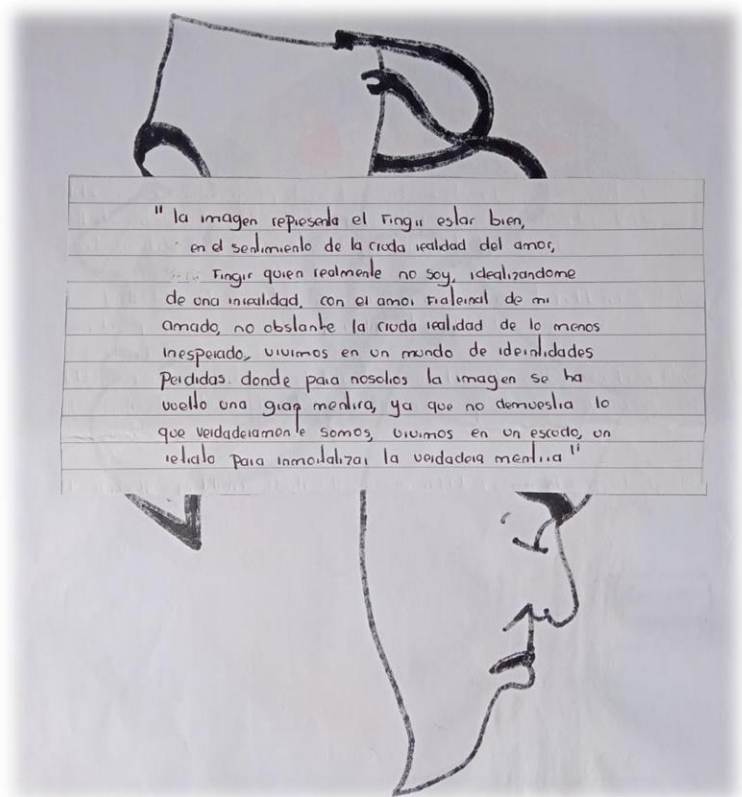 " la imagen representa el Fingir estar bien,
en el sentimiento de la cruda realdad del amor,
Fingir quien realmente no soy, idealizandome
de una inrealidad, con el amor Fraternal de mi
amado, no obstante la cruda realidad de lo menos
inesperado, vivimos en un mundo de identidades
Perdidas. donde para nosotros la imagen se ha
vuelto una gran mentira, ya que no demuestra lo
que verdaderamente somos, vivimos en un escudo, un
retrato para inmortalizar la verdadera mentira "